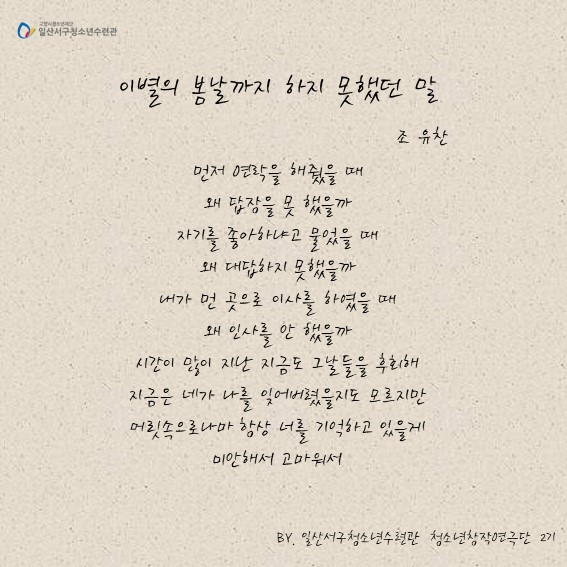 고양시청소년재단
일산서구청소년수련관
이별의 봄날까지 하지 못했던 말
조 유찬
먼저 연락을 해줬을 때
왜 답장을 못 했을까
자기를 좋아하냐고 물었을 때
왜 대답하지 못했을까
내가 먼 곳으로 이사를 하였을 때
왜 인사를 안 했을까
시간이 많이 지난 지금도 그날들을 후회해
지금은 네가 나를 잊어버렸을지도 모르지만
머릿속으로나마 항상 너를 기억하고 있을게
미안해서 고마워서
BY. 일산서구청소년수련관 청소년창작연극단 2기